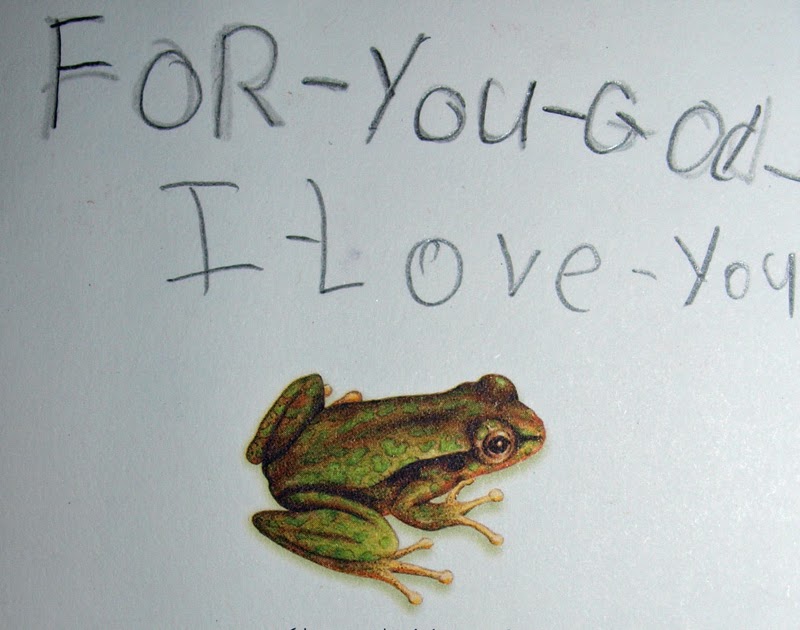 FOR-You-God-
I-Love-You